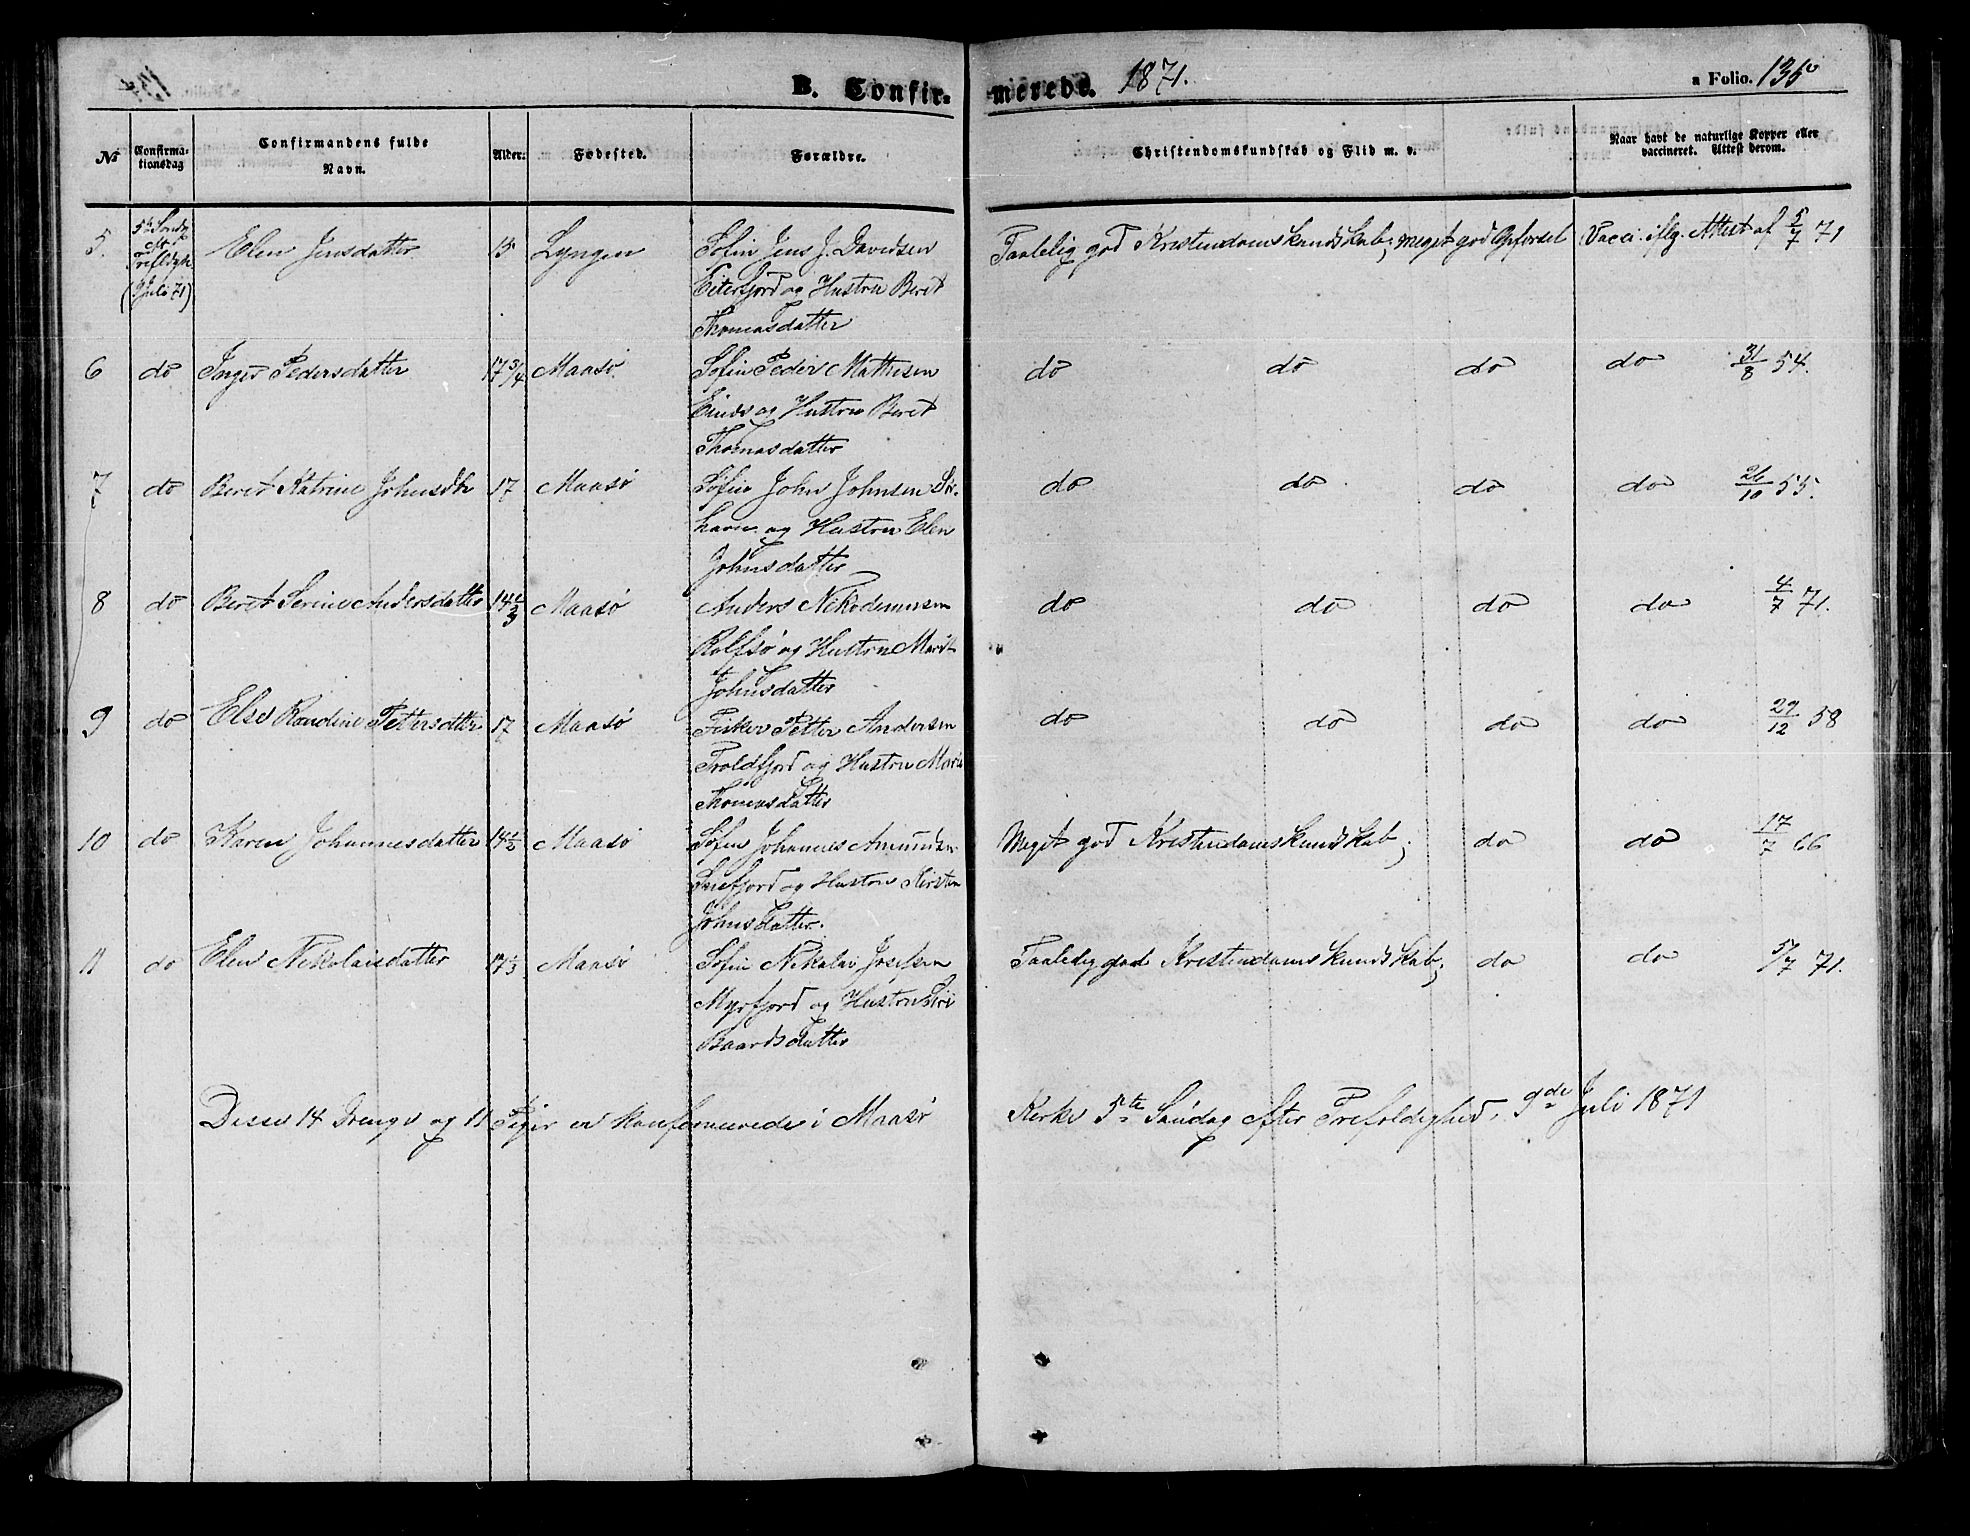 B. Confirmerede. 1871. a Folio. 135
No Confirmationsdag Confirmandens fulde Navn. Alder. Fødested. Forældre. Christendomskundskab og Flid m. v. Naar havt de naturlige Kopper eller vaccineret. Attest derom.
5. 5te Sondg Elen Jensdatter 15 Lyngen Søfin Jens J. Davidsen Taalelig god Kristendomskundskab; meget god Opførsel Vacci. iflg. Attest af 5/7 71
(9 Juli 71) Eiterfjord og Hustru Beret
Thomasdatter
6 do Inger Pedersdatter 17 3/4 Maasø Søfin Peder Mathisen do do do do 31/8 54.
og Hustru Beret
Thomasdatter
7 do Beret Katrine Johnsdtr 17 Maasø Søfin John Johnsen Sør- do do do do 26/10 55.
havn og Hustru Elen
Johnsdatter
8 do Beret Serine Andersdatter 14 2/3 Maasø Anders Nikodemusen do do do do 4/7 71.
Rolfsø og Hustru Marit
Johnsdatter
9 do Else Randine Pettersdatter 17 Maasø Fisker Petter Andersen do do do do 29/12 58
Troldfjord og Hustru
Thomasdatter
10 do Karen Johannesdatter 14 1/2 Maasø Søfin Johannes Amundsen Meget god Kristendomskundskab; do do 17/7 66
Snefjord og Hustru Kirsten
Johnsdatter.
11 do Elen Nikolaisdatter 17 1/3 Maasø Søfin Nikolai Josefsen Taalelig god Kristendomskundskab; do do 5/7 71.
Myrfjord og Hustru Siri
Baardsdatter
Disse 14 Drenge og 11 Piger er konfirmerede i Maasø Kirke 5te Søndag efter Trefoldighed, 9de Juli 1871